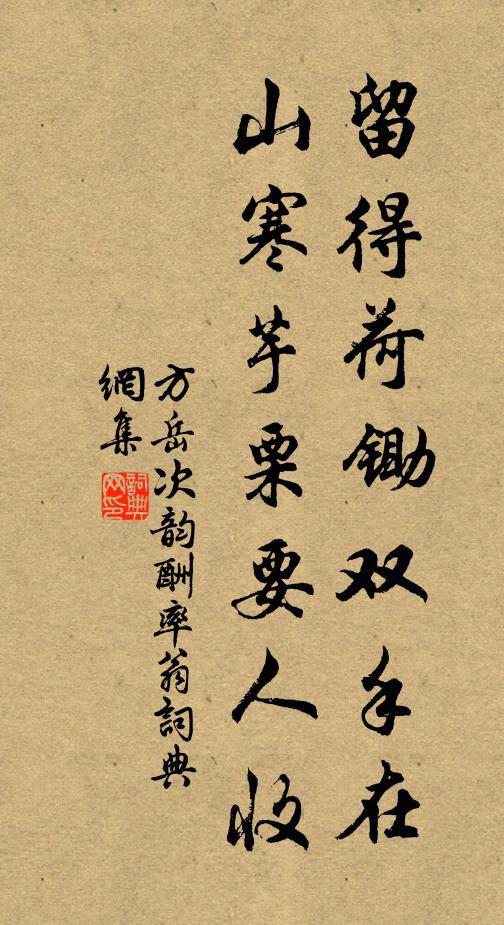 留得荷锄双手在
山寒芋栗要人收
方岳次韵酬率翁詞典
網集
詞典
网印